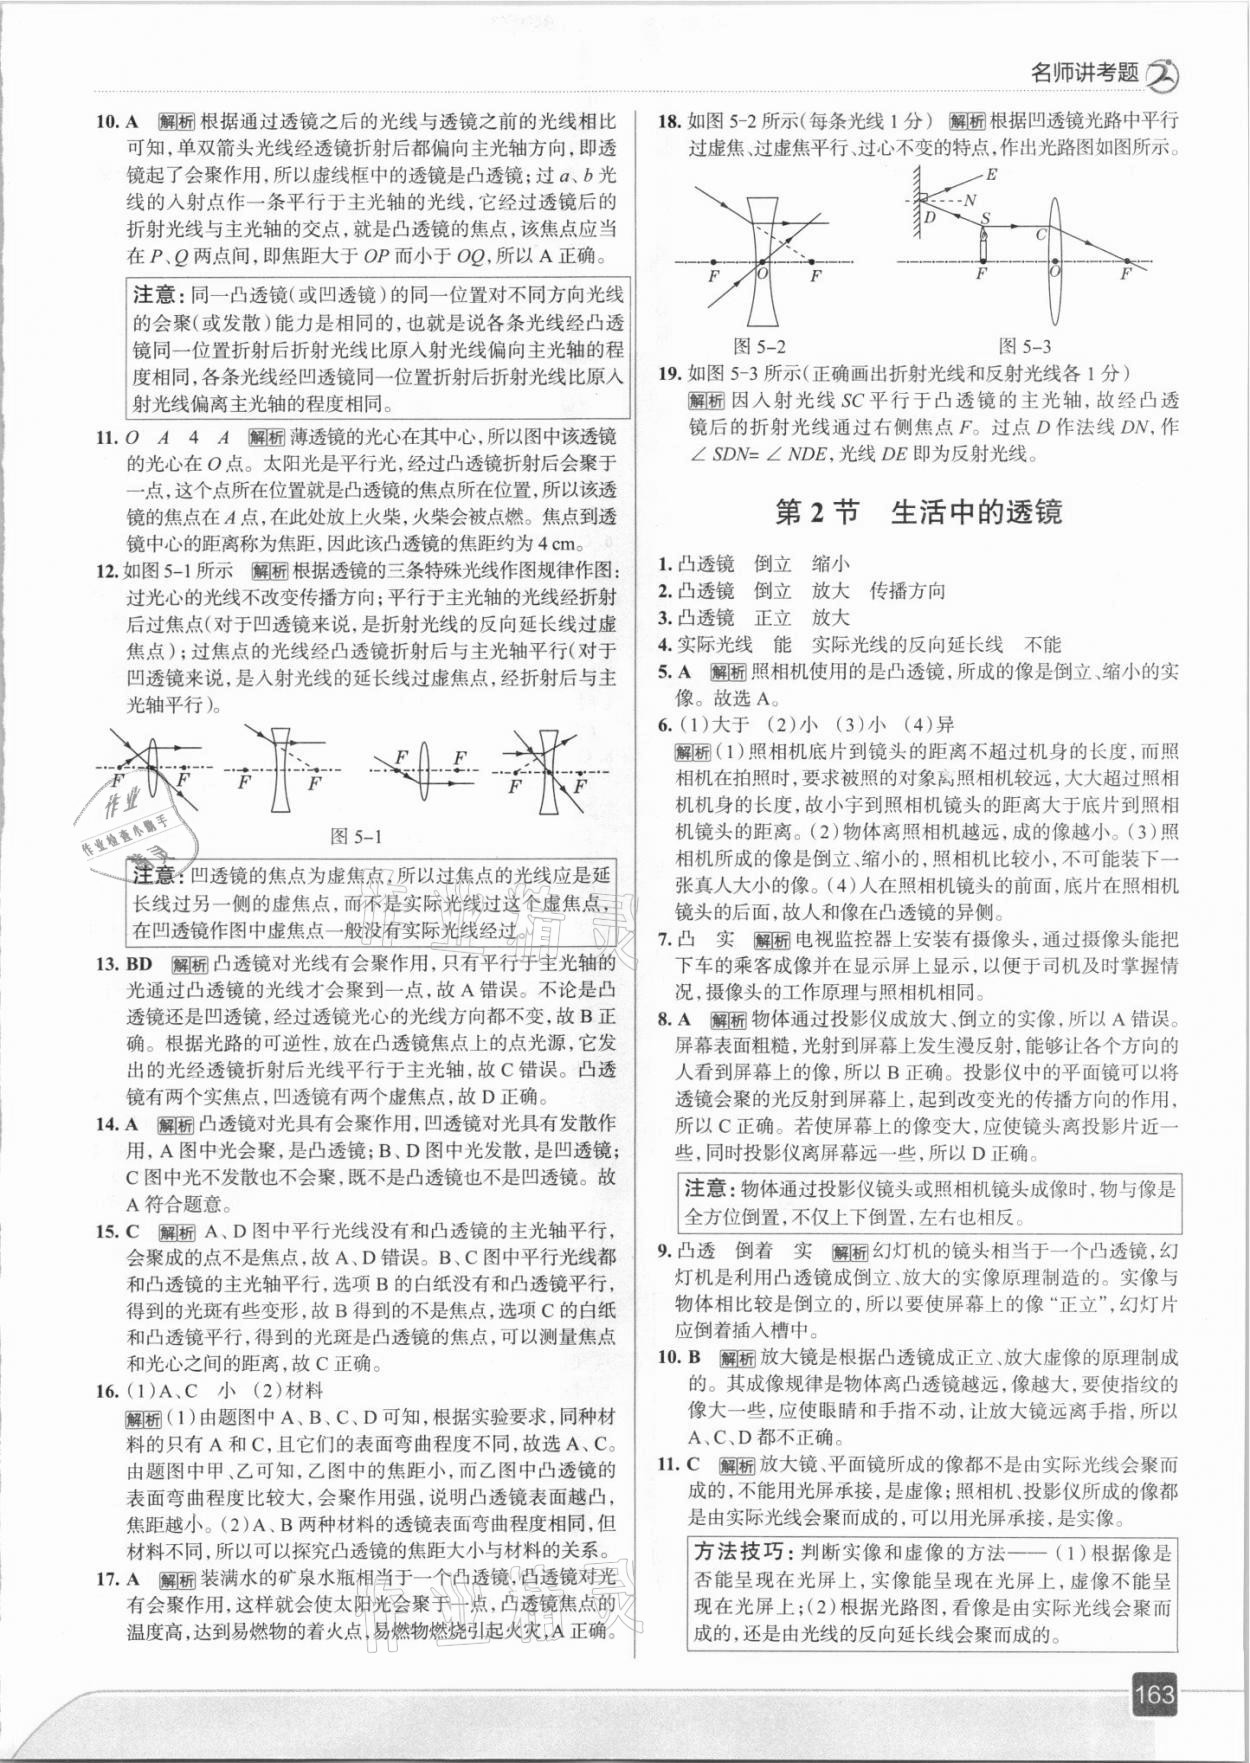 名师讲考题
10. A 解析 根据通过透镜之后的光线与透镜之前的光线相比
可知，单双箭头光线经透镜折射后都偏向主光轴方向，即透
镜起了会聚作用，所以虚线框中的透镜是凸透镜；过 a、b 光
线的入射点作一条平行于主光轴的光线，它经过透镜后的
折射光线与主光轴的交点，就是凸透镜的焦点，该焦点应当
在 P、Q 两点间，即焦距大于 OP 而小于 OQ，所以 A 正确。
注意：同一凸透镜（或凹透镜）的同一位置对不同方向光线
的会聚（或发散）能力是相同的，也就是说各条光线经凸透
镜同一位置折射后折射光线比原入射光线偏向主光轴的程
度相同，各条光线经凹透镜同一位置折射后折射光线比原入
射光线偏离主光轴的程度相同。
11. O A 4 A 解析 薄透镜的光心在其中心，所以图中该透镜
的光心在 O 点。太阳光是平行光，经过凸透镜折射后会聚于
一点，这个点所在位置就是凸透镜的焦点所在位置，所以该透
镜的焦点在 A 点，在此处放上火柴，火柴会被点燃。焦点到透
镜中心的距离称为焦距，因此该凸透镜的焦距约为 4 cm。
12. 如图 5-1 所示 解析 根据透镜的三条特殊光线作图规律作图：
过光心的光线不改变传播方向；平行于主光轴的光线经折射
后过焦点（对于凹透镜来说，是折射光线的反向延长线过虚
焦点）；过焦点的光线经凸透镜折射后与主光轴平行（对于
凹透镜来说，是入射光线的延长线过虚焦点，经折射后与主
光轴平行）。
F F F F F F F F
图 5-1
注意：凹透镜的焦点为虚焦点，所以过焦点的光线应是延
长线过另一侧的虚焦点，而不是实际光线过这个虚焦点，
在凹透镜作图中虚焦点一般没有实际光线经过。
13. BD 解析 凸透镜对光线有会聚作用，只有平行于主光轴的
光通过凸透镜的光线才会聚到一点，故 A 错误。不论是凸
透镜还是凹透镜，经过透镜光心的光线方向都不变，故 B 正
确。根据光路的可逆性，放在凸透镜焦点上的点光源，它发
出的光经透镜折射后光线平行于主光轴，故 C 错误。凸透
镜有两个实焦点，凹透镜有两个虚焦点，故 D 正确。
14. A 解析 凸透镜对光具有会聚作用，凹透镜对光具有发散作
用，A 图中光会聚，是凸透镜；B、D 图中光发散，是凹透镜；
C 图中光不发散也不会聚，既不是凸透镜也不是凹透镜。故
A 符合题意。
15. C 解析 A、D 图中平行光线没有和凸透镜的主光轴平行，
会聚成的点不是焦点，故 A、D 错误。B、C 图中平行光线都
和凸透镜的主光轴平行，选项 B 的白纸没有和凸透镜平行，
得到的光斑有些变形，故 B 得到的不是焦点，选项 C 的白纸
和凸透镜平行，得到的光斑是凸透镜的焦点，可以测量焦点
和光心之间的距离，故 C 正确。
16. (1)A、C 小 (2)材料
解析 (1)由题图中 A、B、C、D 可知，根据实验要求，同种材
料的只有 A 和 C，且它们的表面弯曲程度不同，故选 A、C。
由题图中甲、乙可知，乙图中的焦距小，而乙图中凸透镜的
表面弯曲程度比较大，会聚作用强，说明凸透镜表面越凸，
焦距越小。(2)A、B 两种材料的透镜表面弯曲程度相同，但
材料不同，所以可以探究凸透镜的焦距大小与材料的关系。
17. A 解析 装满水的矿泉水瓶相当于一个凸透镜，凸透镜对光
有会聚作用，这样就会使太阳光会聚于一点，凸透镜焦点的
温度高，达到易燃物的着火点，易燃物燃烧引起火灾，A 正确。
18. 如图 5-2 所示（每条光线 1 分） 解析 根据凹透镜光路中平行
过虚焦、过虚焦平行、过心不变的特点，作出光路图如图所示。
F O F
图 5-2
E N D S C F O F
图 5-3
19. 如图 5-3 所示（正确画出折射光线和反射光线各 1 分）
解析 因入射光线 SC 平行于凸透镜的主光轴，故经凸透
镜后的折射光线通过右侧焦点 F。过点 D 作法线 DN，作
∠SDN=∠NDE，光线 DE 即为反射光线。
第 2 节 生活中的透镜
1. 凸透镜 倒立 缩小
2. 凸透镜 倒立 放大 传播方向
3. 凸透镜 正立 放大
4. 实际光线 能 实际光线的反向延长线 不能
5. A 解析 照相机使用的是凸透镜，所成的像是倒立、缩小的实
像。故选 A。
6. (1)大于 (2)小 (3)小 (4)异
解析 (1)照相机底片到镜头的距离不超过机身的长度，而照
相机在拍照时，要求被照的对象离照相机较远，大大超过照相
机机身的长度，故小宇到照相机镜头的距离大于底片到照相
机镜头的距离。(2)物体离照相机越远，成的像越小。(3)照
相机所成的像是倒立、缩小的，照相机比较小，不可能装下一
张真人大小的像。(4)人在照相机镜头的前面，底片在照相机
镜头的后面，故人和像在凸透镜的异侧。
7. 凸 实 解析 电视监控器上安装有摄像头，通过摄像头能把
下车的乘客成像并在显示屏上显示，以便于司机及时掌握情
况，摄像头的工作原理与照相机相同。
8. A 解析 物体通过投影仪成放大、倒立的实像，所以 A 错误。
屏幕表面粗糙，光射到屏幕上发生漫反射，能够让各个方向的
人看到屏幕上的像，所以 B 正确。投影仪中的平面镜可以将
透镜会聚的光反射到屏幕上，起到改变光的传播方向的作用，
所以 C 正确。若使屏幕上的像变大，应使镜头离投影片近一
些，同时投影仪离屏幕远一些，所以 D 正确。
注意：物体通过投影仪镜头或照相机镜头成像时，物与像是
全方位倒置，不仅上下倒置，左右也相反。
9. 凸透 倒着 实 解析 幻灯机的镜头相当于一个凸透镜，幻
灯机是利用凸透镜成倒立、放大的实像原理制造的。实像与
物体相比较是倒立的，所以要使屏幕上的像“正立”，幻灯片
应倒着插入槽中。
10. B 解析 放大镜是根据凸透镜成正立、放大虚像的原理制成
的。其成像规律是物体离凸透镜越远，像越大，要使指纹的
像大一些，应使眼睛和手指不动，让放大镜远离手指，所以
A、C、D 都不正确。
11. C 解析 放大镜、平面镜所成的像都不是由实际光线会聚而
成的，不能用光屏承接，是虚像；照相机、投影仪所成的像都
是由实际光线会聚而成的，可以用光屏承接，是实像。
方法技巧：判断实像和虚像的方法——(1)根据像是
否能呈现在光屏上，实像能呈现在光屏上，虚像不能呈
现在光屏上；(2)根据光路图，看像是由实际光线会聚而
成的，还是由光线的反向延长线会聚而成的。
163
作业
作业检查小助手
精灵
作业精灵
作业精灵